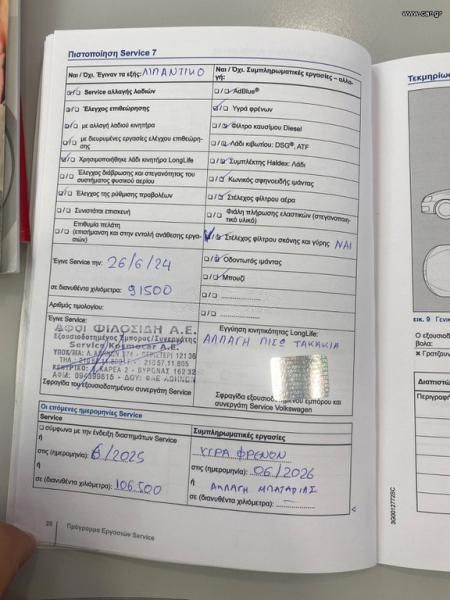 www.car.gr
Πιστοποίηση Service 7
Ναι / Όχι. Έγιναν τα εξής: ΛΙΠΑΝΤΙΚΟ
Ναι / Όχι. Συμπληρωματικές εργασίες – αλλαγή:
Service αλλαγής λαδιών
AdBlue®
Έλεγχος επιθεώρησης
Υγρά φρένων
με αλλαγή λαδιού κινητήρα
Φίλτρο καυσίμου Diesel
με διευρυμένες εργασίες ελέγχου επιθεώρησης
Λάδι κιβωτίου: DSG®, ATF
Χρησιμοποιήθηκε λάδι κινητήρα LongLife
Συμπλέκτης Haldex: Λάδι
Έλεγχος διάβρωσης και στεγανότητας του συστήματος φυσικού αερίου
Κωνικός σφηνοειδής ιμάντας
Έλεγχος της ρύθμισης προβολέων
Στέλεχος φίλτρου αέρα
Συνιστάται επισκευή
Φιάλη πλήρωσης ελαστικών (στεγανοποιητικό υλικό)
Επιθυμία πελάτη
(επισήμανση και στην εντολή ανάθεσης εργασιών)
Στέλεχος φίλτρου σκόνης και γύρης ΝΑΙ
Οδοντωτός ιμάντας
Έγινε Service την: 26/6/24
Μπουζί
σε διανυθέντα χιλιόμετρα: 91500
Αριθμός τιμολογίου:
Έγινε Service:
Εγγύηση κινητικότητας LongLife:
ΑΦΟΙ ΦΙΛΟΣΙΔΗ Α.Ε.
Εξουσιοδοτημένος Έμπορος/Συνεργάτης
Service/Kosmocar A.E.
ΑΛΛΑΓΗ ΠΙΣΩ ΤΑΚΑΚΙΑ
Σφραγίδα του εξουσιοδοτημένου συνεργάτη Service
Σφραγίδα εξουσιοδοτημένου εμπόρου και συνεργάτη Service Volkswagen
Οι επόμενες ημερομηνίες Service
Service
Συμπληρωματικές εργασίες
σύμφωνα με την ένδειξη διαστημάτων Service
ΥΓΡΑ ΦΡΕΝΩΝ
ή
στις (ημερομηνία): 6/2025
στις (ημερομηνία): 06/2026
ή
ή ΑΛΛΑΓΗ ΜΠΑΤΑΡΙΑΣ
σε (διανυθέντα χιλιόμετρα): 106.500
σε (διανυθέντα χιλιόμετρα):
28 Πρόγραμμα Εργασιών Service
3G0012772SC
Τεκμηρίω
εικ. 9 Γενι
Ο εξουσιοδ
βολα:
Γρατζουν
Διαπιστώ
Περιγραφή